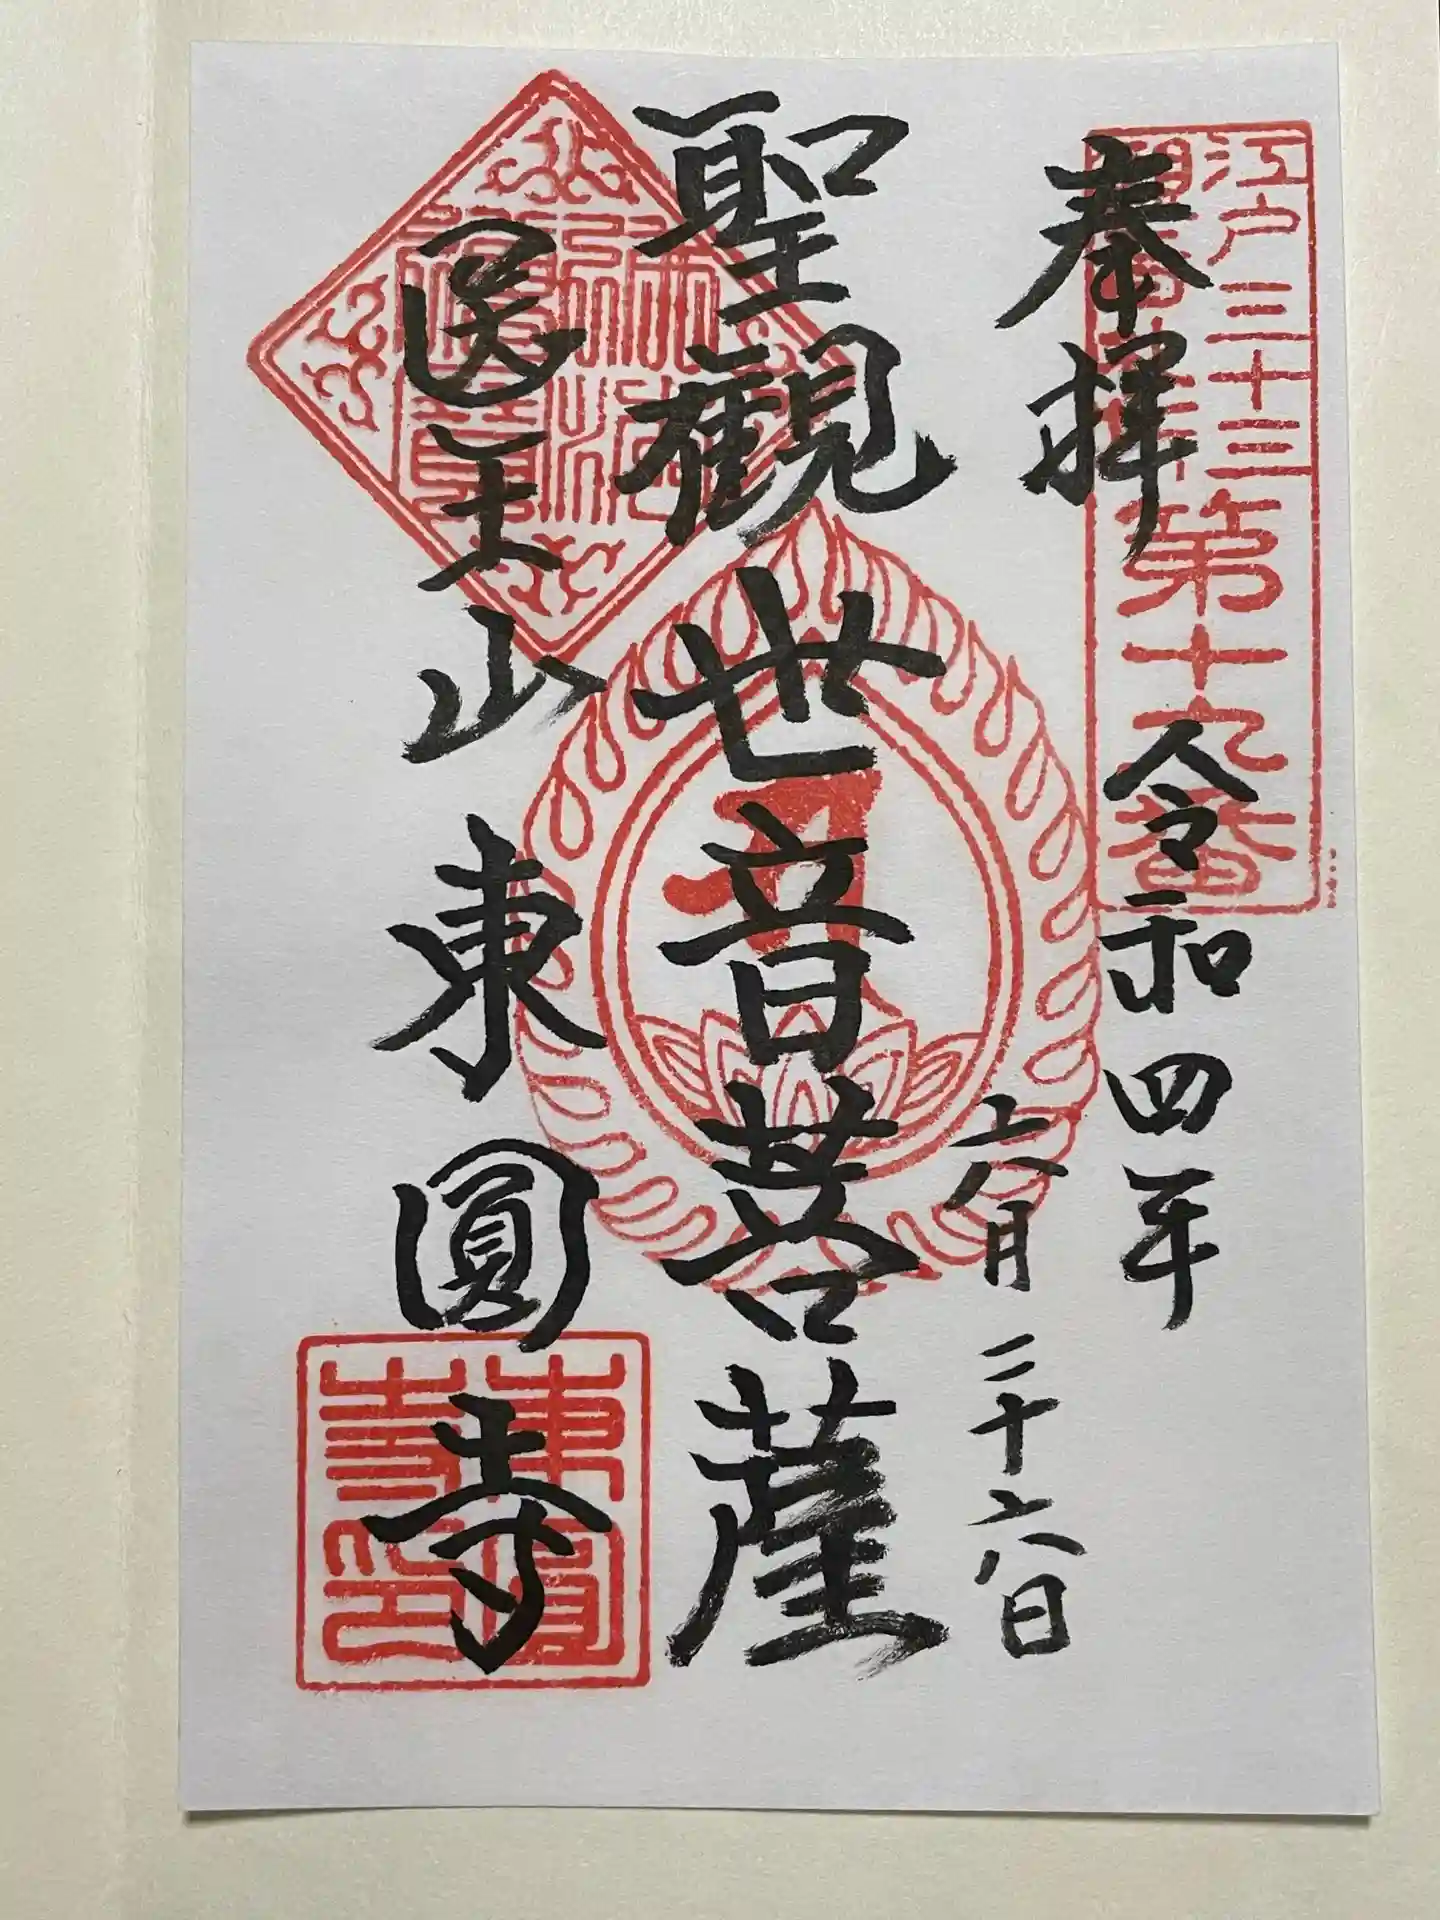 江戸三十三
観音札所
第十九番
奉拝
令和四年
六月二十六日
聖観世音菩薩
医王山東圓寺
東圓
寺印